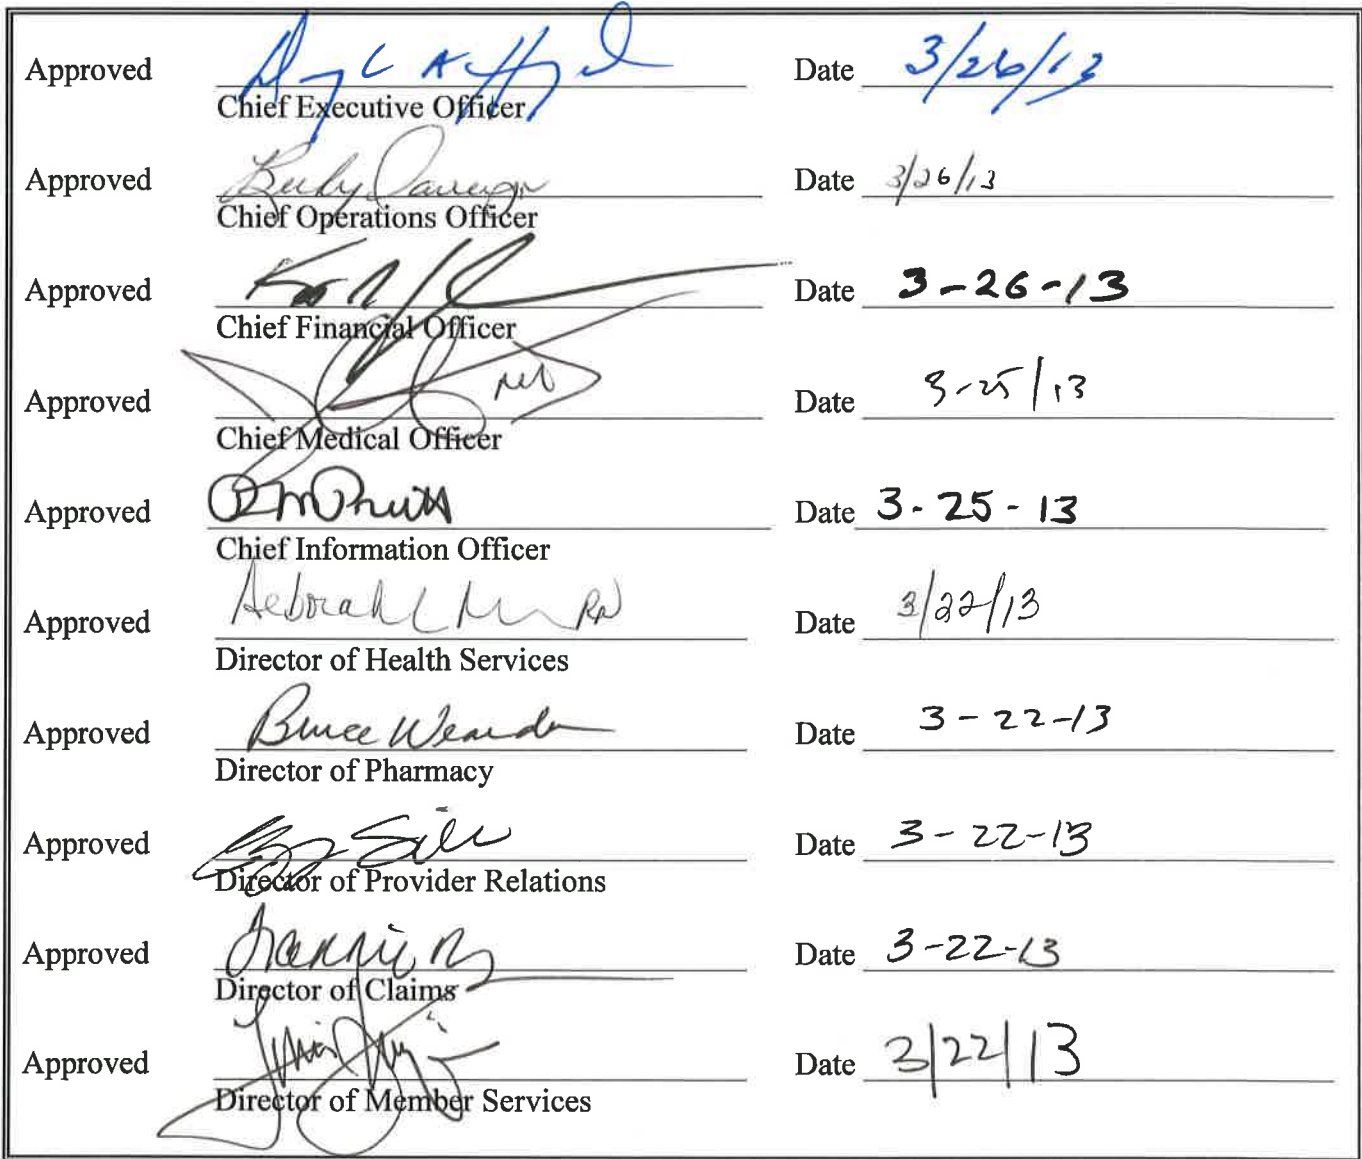 Approved Date 3/26/13
Chief Executive Officer
Approved Date 3/26/13
Chief Operations Officer
Approved Date 3-26-13
Chief Financial Officer
Approved MD Date 3-25/13
Chief Medical Officer
Approved Date 3-25-13
Chief Information Officer
Approved Deborah RN Date 3/22/13
Director of Health Services
Approved Bruce Date 3-22-13
Director of Pharmacy
Approved Date 3-22-13
Director of Provider Relations
Approved Date 3-22-13
Director of Claims
Approved Date 3/22/13
Director of Member Services